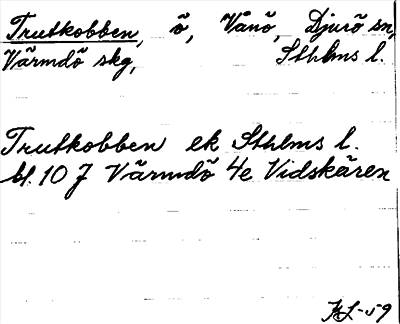 Trutkobben, ö, Vånö, Djurö sn,
Värmdö skg, Sthlms l.
Trutkobben ek Sthlms l.
bl. 10 J Värmdö 4e Vidskären
KL-59